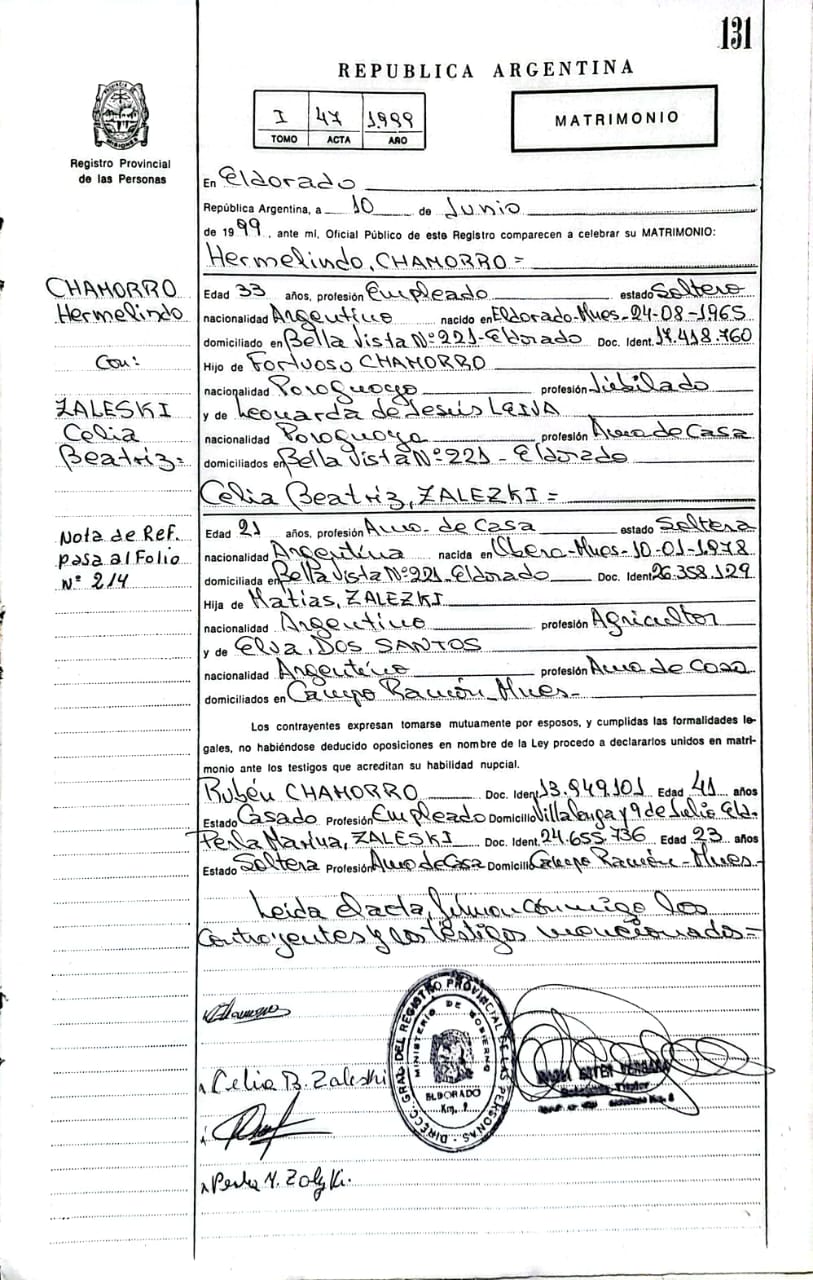 131
REPUBLICA ARGENTINA
I 47 1999
TOMO ACTA AÑO
MATRIMONIO
Registro Provincial
de las Personas
En Eldorado
República Argentina, a 10 de Junio
de 1999, ante mí, Oficial Público de este Registro comparecen a celebrar su MATRIMONIO:
Hermelindo, CHAMORRO =
CHAMORRO
Hermelindo
Con:
ZALESKI
Celia
Beatriz=
Nota de Ref.
pasa al Folio
Nº 214
Edad 33 años, profesión Empleado estado Soltero
nacionalidad Argentino nacido en Eldorado-Mnes-24-08-1965
domiciliado en Bella Vista Nº 221-Eldorado Doc. Ident. 17.418.760
Hijo de Fortuoso CHAMORRO
nacionalidad Paraguayo profesión Jubilado
y de Leonarda de Jesús LEIVA
nacionalidad Paraguaya profesión Ama de Casa
domiciliados en Bella Vista Nº 221 - Eldorado
Celia Beatriz, ZALEZKI =
Edad 21 años, profesión Ama de Casa estado Soltera
nacionalidad Argentina nacida en Obera-Mnes-10-01-1978
domiciliada en Bella Vista Nº 221-Eldorado Doc. Ident. 26.358.129
Hija de Matias, ZALEZKI
nacionalidad Argentino profesión Agricultor
y de Elva, DOS SANTOS
nacionalidad Argentina profesión Ama de Casa
domiciliados en Campo Ramón-Mnes-
Los contrayentes expresan tomarse mutuamente por esposos, y cumplidas las formalidades le-
gales, no habiéndose deducido oposiciones en nombre de la Ley procedo a declararlos unidos en matri-
monio ante los testigos que acreditan su habilidad nupcial.
Rubén CHAMORRO Doc. Ident. 13.949.101 Edad 41 años
Estado Casado Profesión Empleado Domicilio Villalonga y 9 de Julio Eld.
Perla Marina, ZALESKI Doc. Ident. 24.655.736 Edad 23 años
Estado Soltera Profesión Ama de Casa Domicilio Campo Ramón-Mnes-
Leida el acta, firman conmigo los
contrayentes y los testigos mencionados=
Celia B. Zaleski
DIRECC. GRAL. DEL REGISTRO PROVINCIAL DE LAS PERSONAS
MINISTERIO DE GOBIERNO
ELDORADO
Km. 9